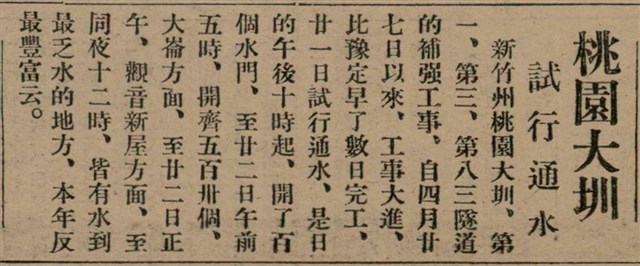 桃園大圳
試行通水
新竹州桃園大圳、第
一、第三、第八三隧道
的補强工事、自四月廿
七日以來、工事大進、
比豫定早了數日完工、
廿一日試行通水、是日
的午後十時起、開了百
個水門、至廿二日午前
五時、開齊五百卅個、
大崙方面、至廿二日正
午、觀音新屋方面、至
同夜十二時、皆有水到
最乏水的地方、本年反
最豐富云。